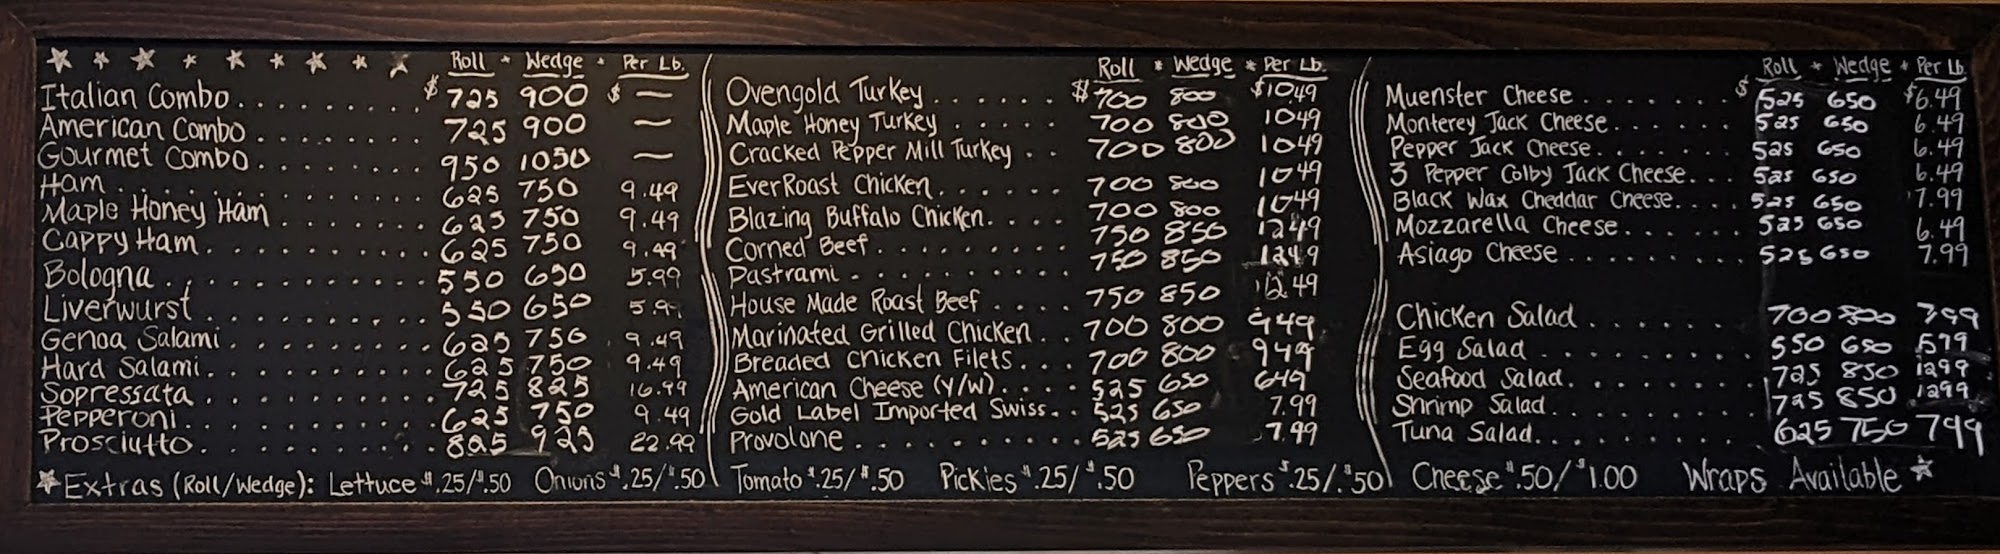 Roll * Wedge * Per Lb.
Italian Combo.......... $ 725 900 $ —
American Combo.......... 725 900 —
Gourmet Combo.......... 950 1050 —
Ham.......... 625 750 9.49
Maple Honey Ham.......... 625 750 9.49
Cappy Ham.......... 625 750 9.49
Bologna.......... 550 650 5.99
Liverwurst.......... 550 650 5.99
Genoa Salami.......... 625 750 9.49
Hard Salami.......... 625 750 9.49
Sopressata.......... 725 825 16.99
Pepperoni.......... 625 750 9.49
Prosciutto.......... 825 925 22.99
Roll * Wedge * Per Lb.
Ovengold Turkey...... $700 800 $10.49
Maple Honey Turkey..... 700 800 1049
Cracked Pepper Mill Turkey.. 700 800 1049
EverRoast Chicken...... 700 800 1049
Blazing Buffalo Chicken.... 700 800 1049
Corned Beef.......... 750 850 1249
Pastrami.......... 750 850 1249
House Made Roast Beef.... 750 850 12.49
Marinated Grilled Chicken.. 700 800 949
Breaded Chicken Filets... 700 800 949
American Cheese (Y/W).... 525 650 649
Gold Label Imported Swiss.. 525 650 7.99
Provolone.......... 525 650 7.99
Roll * Wedge * Per Lb.
Muenster Cheese....... $525 650 $6.49
Monterey Jack Cheese...... 525 650 6.49
Pepper Jack Cheese....... 525 650 6.49
3 Pepper Colby Jack Cheese... 525 650 6.49
Black Wax Cheddar Cheese.... 525 650 7.99
Mozzarella Cheese...... 525 650 6.49
Asiago Cheese......... 525 650 7.99
Chicken Salad....... 700 800 799
Egg Salad......... 550 650 599
Seafood Salad........ 725 850 1299
Shrimp Salad......... 725 850 1299
Tuna Salad......... 625 750 799
*Extras (Roll/Wedge): Lettuce $.25/$.50 Onions $.25/$.50 Tomato $.25/$.50 Pickles $.25/$.50 Peppers $.25/.$50 Cheese $.50/$1.00 Wraps Available *